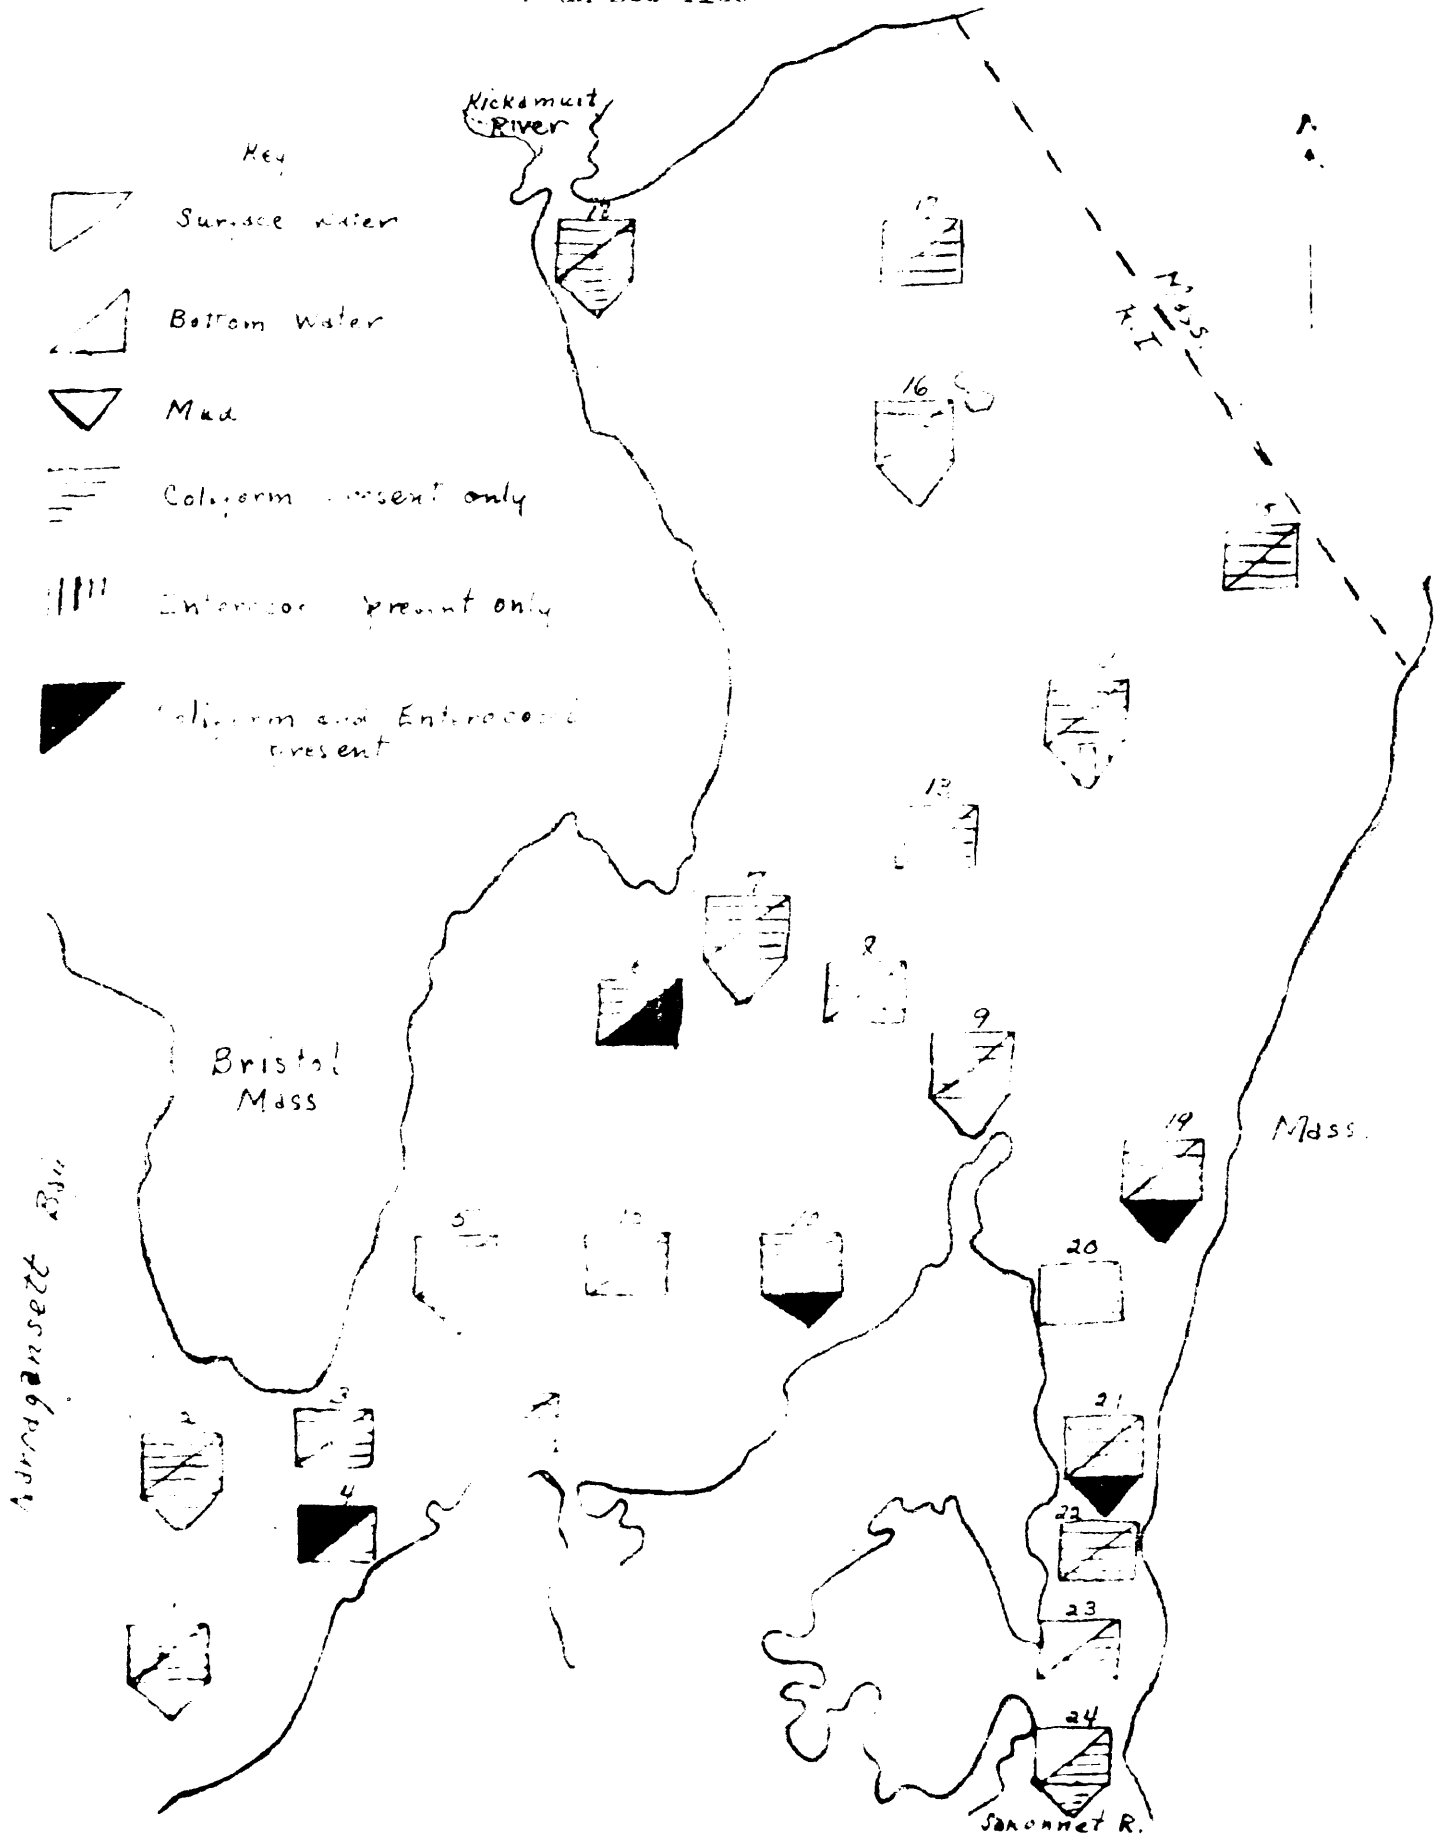 Kickamuit
River
Key
Surface Water
Bottom Water
Mud
Coliform present only
present only
Coliform and Enterococci
present
Mass.
R.I
18
17
16
15
13
7
8
9
Bristol
Mass
Mass.
19
5
10
20
Narragansett Bay
2
3
4
21
22
23
24
Sakonnet R.